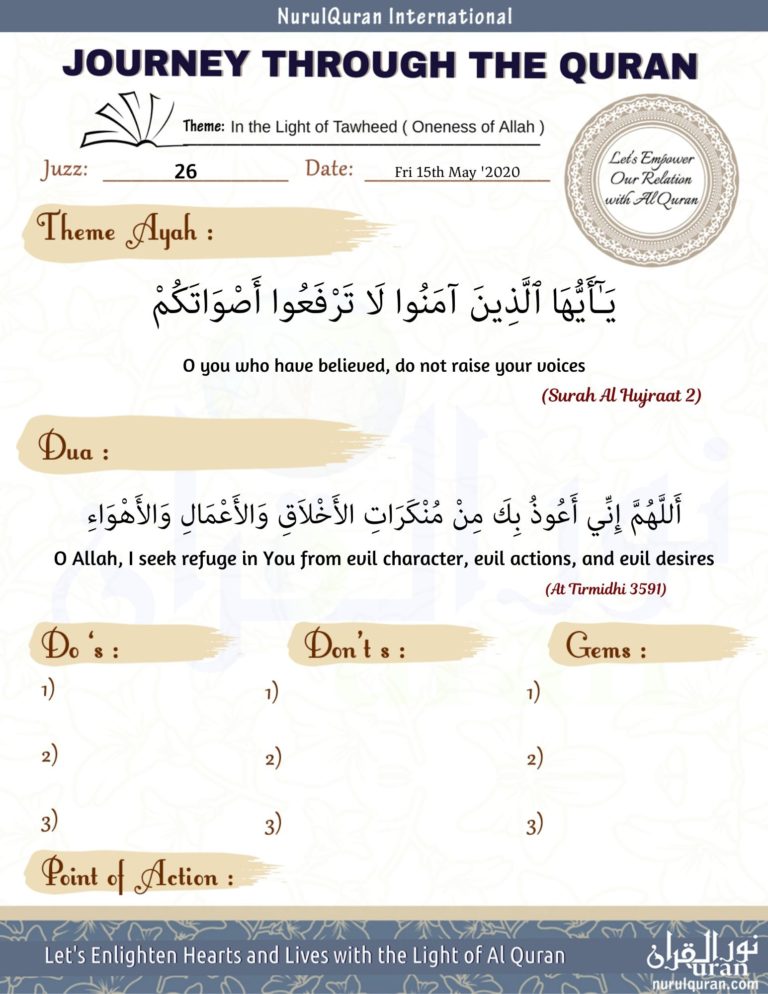 NurulQuran International
JOURNEY THROUGH THE QURAN
Theme: In the Light of Tawheed ( Oneness of Allah )
Juzz: 26 Date: Fri 15th May '2020
Let's Empower
Our Relation
with Al Quran
Theme Ayah :
يَـٰٓأَيُّهَا ٱلَّذِينَ آمَنُوا لَا تَرْفَعُوا أَصْوَاتَكُمْ
O you who have believed, do not raise your voices
(Surah Al Hujraat 2)
Dua :
أَللَّهُمَّ إِنِّي أَعُوذُ بِكَ مِنْ مُنْكَرَاتِ الأَخْلاَقِ وَالأَعْمَالِ وَالأَهْوَاءِ
O Allah, I seek refuge in You from evil character, evil actions, and evil desires
(At Tirmidhi 3591)
Do 's : Don't s : Gems :
1) 1) 1)
2) 2) 2)
3) 3) 3)
Point of Action :
Let's Enlighten Hearts and Lives with the Light of Al Quran
نور القرآن
uran
nurulquran.com